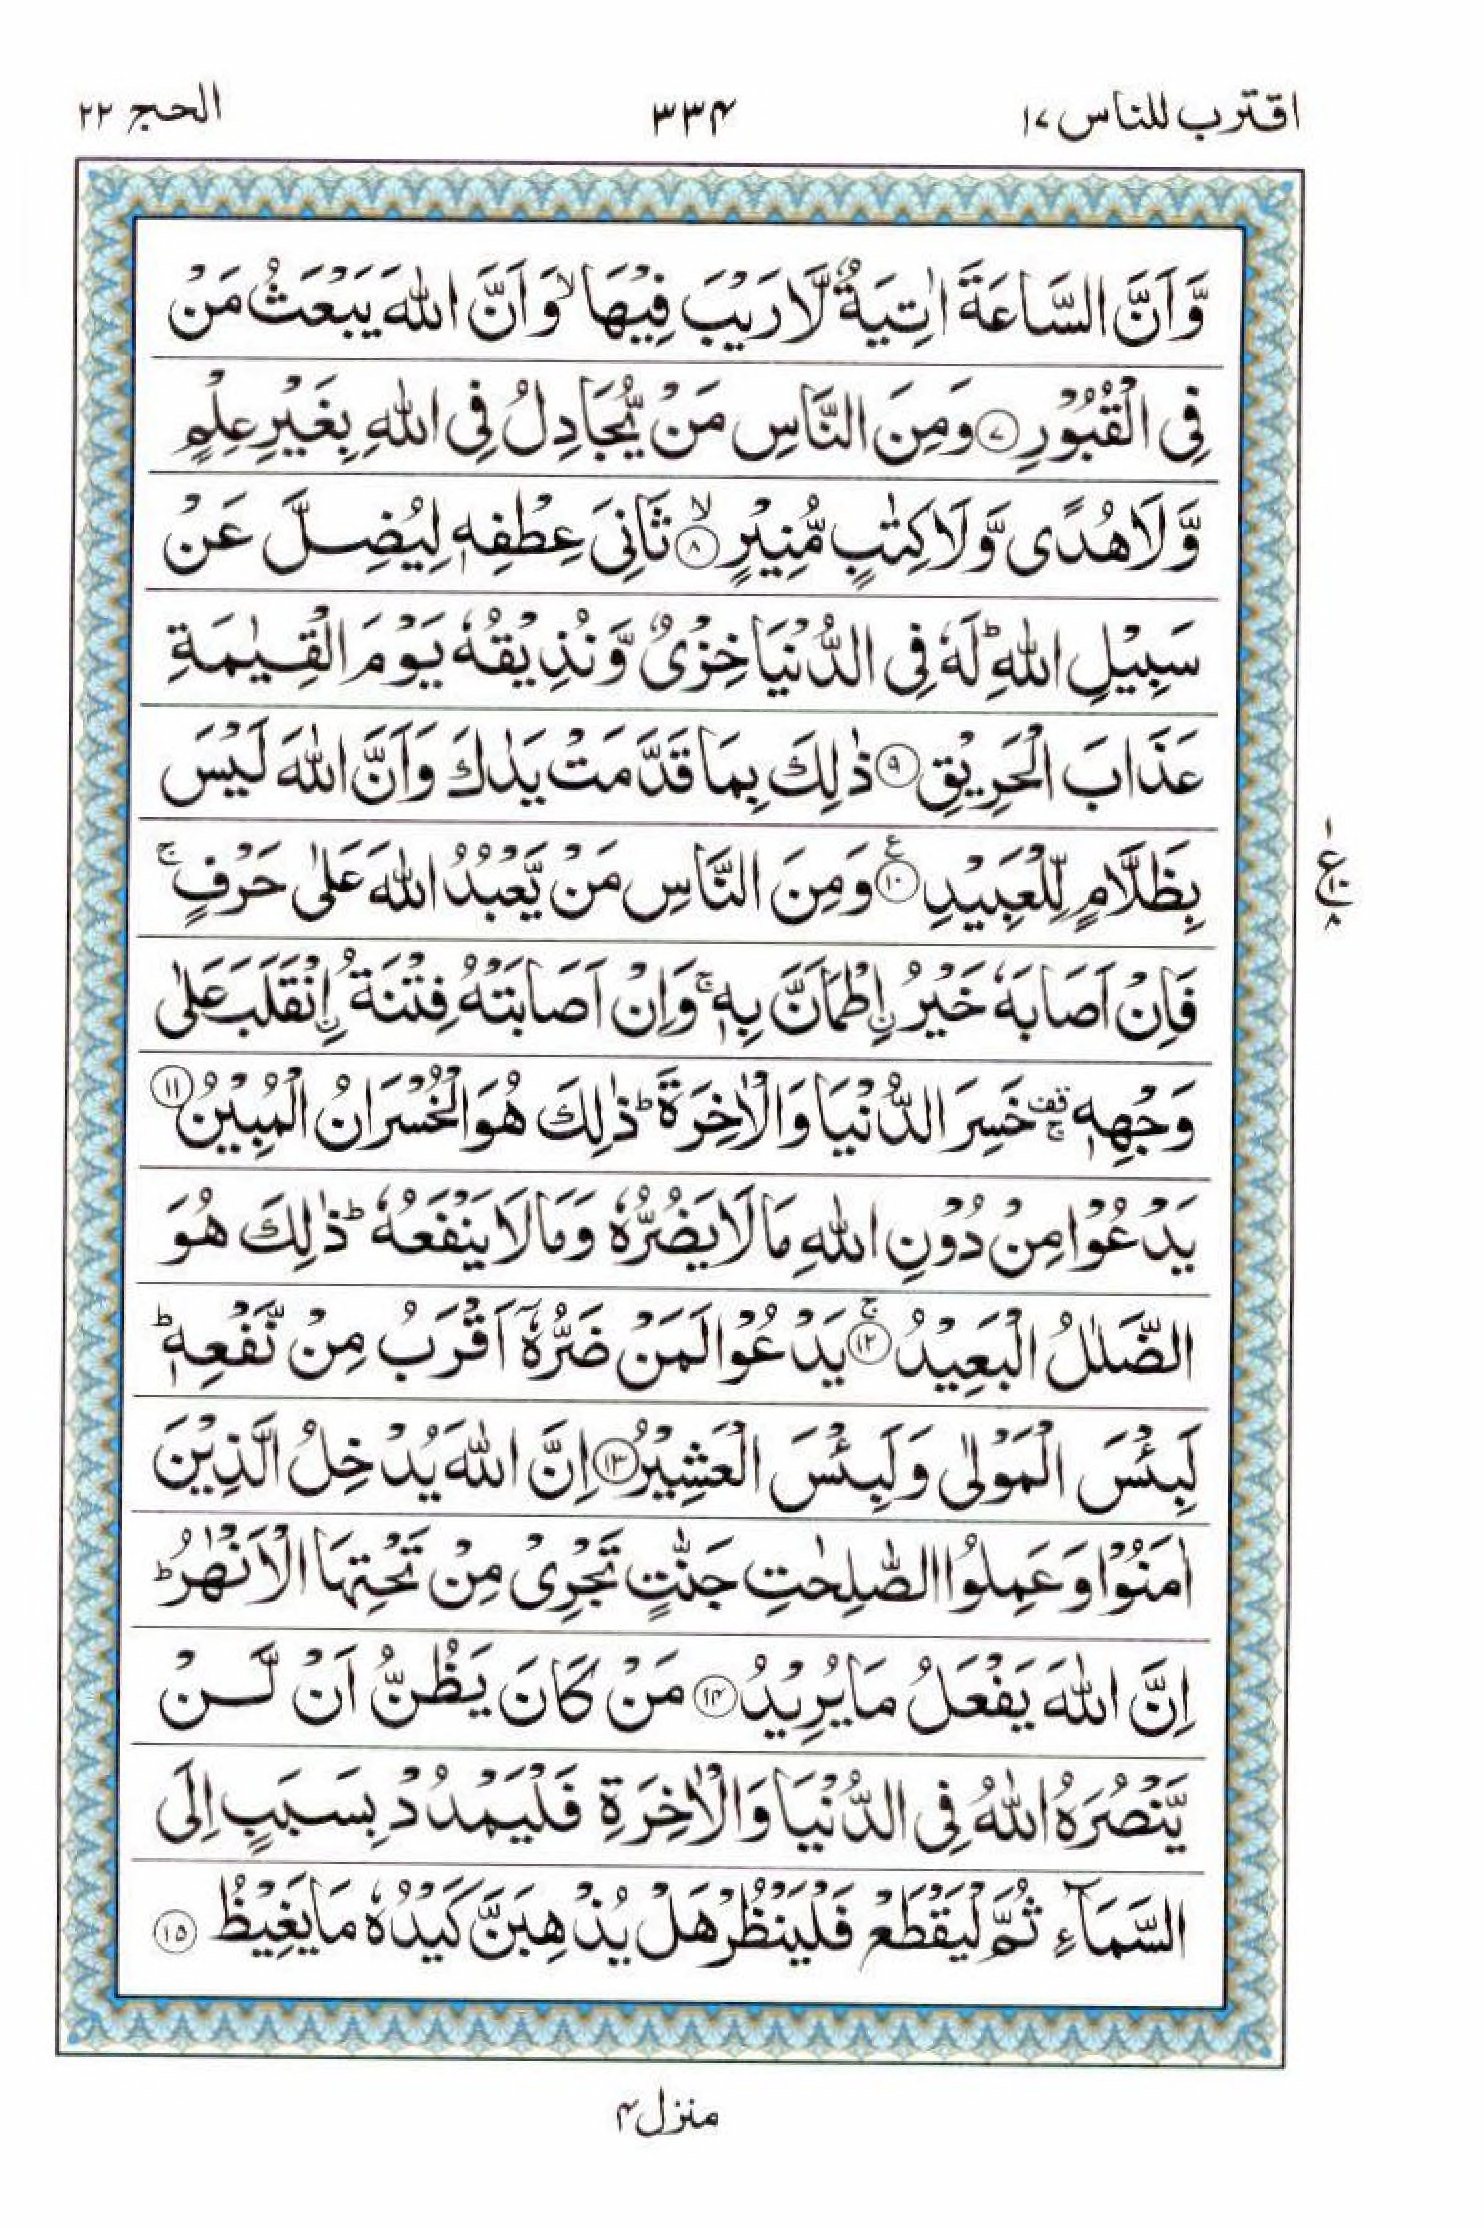 اقترب للناس ١٧
٣٣۴
الحج ٢٢
وَّاَنَّ السَّاعَةَ اٰتِيَةٌ لَّا رَيْبَ فِيْهَا ۙ وَاَنَّ اللّٰهَ يَبْعَثُ مَنْ
فِى الْقُبُوْرِ ﴿٧﴾ وَمِنَ النَّاسِ مَنْ يُّجَادِلُ فِى اللّٰهِ بِغَيْرِ عِلْمٍ
وَّلَا هُدًى وَّلَا كِتٰبٍ مُّنِيْرٍ ۙ﴿٨﴾ ثَانِىَ عِطْفِهٖ لِيُضِلَّ عَنْ
سَبِيْلِ اللّٰهِ ؕ لَهٗ فِى الدُّنْيَا خِزْىٌ وَّنُذِيْقُهٗ يَوْمَ الْقِيٰمَةِ
عَذَابَ الْحَرِيْقِ ﴿٩﴾ ذٰلِكَ بِمَا قَدَّمَتْ يَدٰكَ وَاَنَّ اللّٰهَ لَيْسَ
بِظَلَّامٍ لِّلْعَبِيْدِ ﴿١٠﴾ ع وَمِنَ النَّاسِ مَنْ يَّعْبُدُ اللّٰهَ عَلٰى حَرْفٍ ۚ
فَاِنْ اَصَابَهٗ خَيْرُ ۨاِطْمَاَنَّ بِهٖ ۚ وَاِنْ اَصَابَتْهُ فِتْنَةُ ۨانْقَلَبَ عَلٰى
وَجْهِهٖ ۚ قف خَسِرَ الدُّنْيَا وَالْاٰخِرَةَ ؕ ذٰلِكَ هُوَ الْخُسْرَانُ الْمُبِيْنُ ﴿١١﴾
يَدْعُوْا مِنْ دُوْنِ اللّٰهِ مَا لَا يَضُرُّهٗ وَمَا لَا يَنْفَعُهٗ ؕ ذٰلِكَ هُوَ
الضَّلٰلُ الْبَعِيْدُ ۚ﴿١٢﴾ يَدْعُوْا لَمَنْ ضَرُّهٗۤ اَقْرَبُ مِنْ نَّفْعِهٖ ؕ
لَبِئْسَ الْمَوْلٰى وَلَبِئْسَ الْعَشِيْرُ ﴿١٣﴾ اِنَّ اللّٰهَ يُدْخِلُ الَّذِيْنَ
اٰمَنُوْا وَعَمِلُوا الصّٰلِحٰتِ جَنّٰتٍ تَجْرِىْ مِنْ تَحْتِهَا الْاَنْهٰرُ ؕ
اِنَّ اللّٰهَ يَفْعَلُ مَا يُرِيْدُ ﴿١۴﴾ مَنْ كَانَ يَظُنُّ اَنْ لَّنْ
يَّنْصُرَهُ اللّٰهُ فِى الدُّنْيَا وَالْاٰخِرَةِ فَلْيَمْدُدْ بِسَبَبٍ اِلَى
السَّمَآءِ ثُمَّ لْيَقْطَعْ فَلْيَنْظُرْ هَلْ يُذْهِبَنَّ كَيْدُهٗ مَا يَغِيْظُ ﴿١٥﴾
١
ع ١٠
٨
منزل ۴